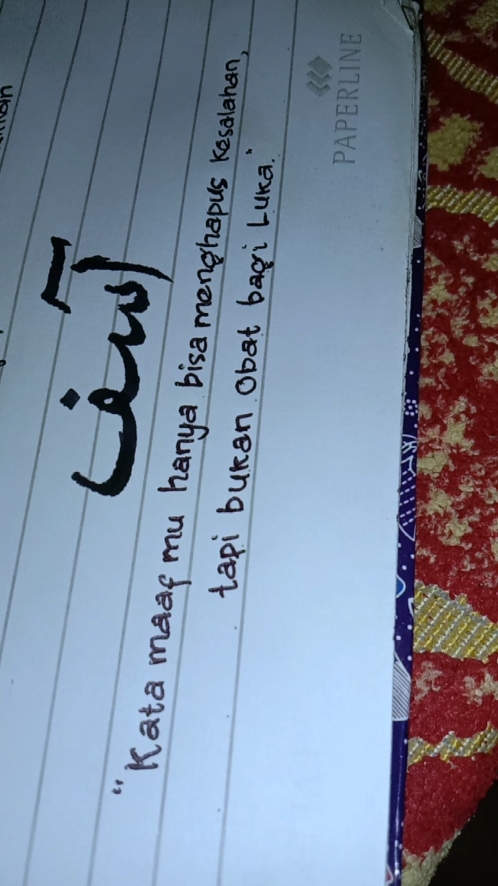 آسف
"Kata maaf mu hanya bisa menghapus Kesalahan,
tapi bukan Obat bagi Luka."
PAPERLINE